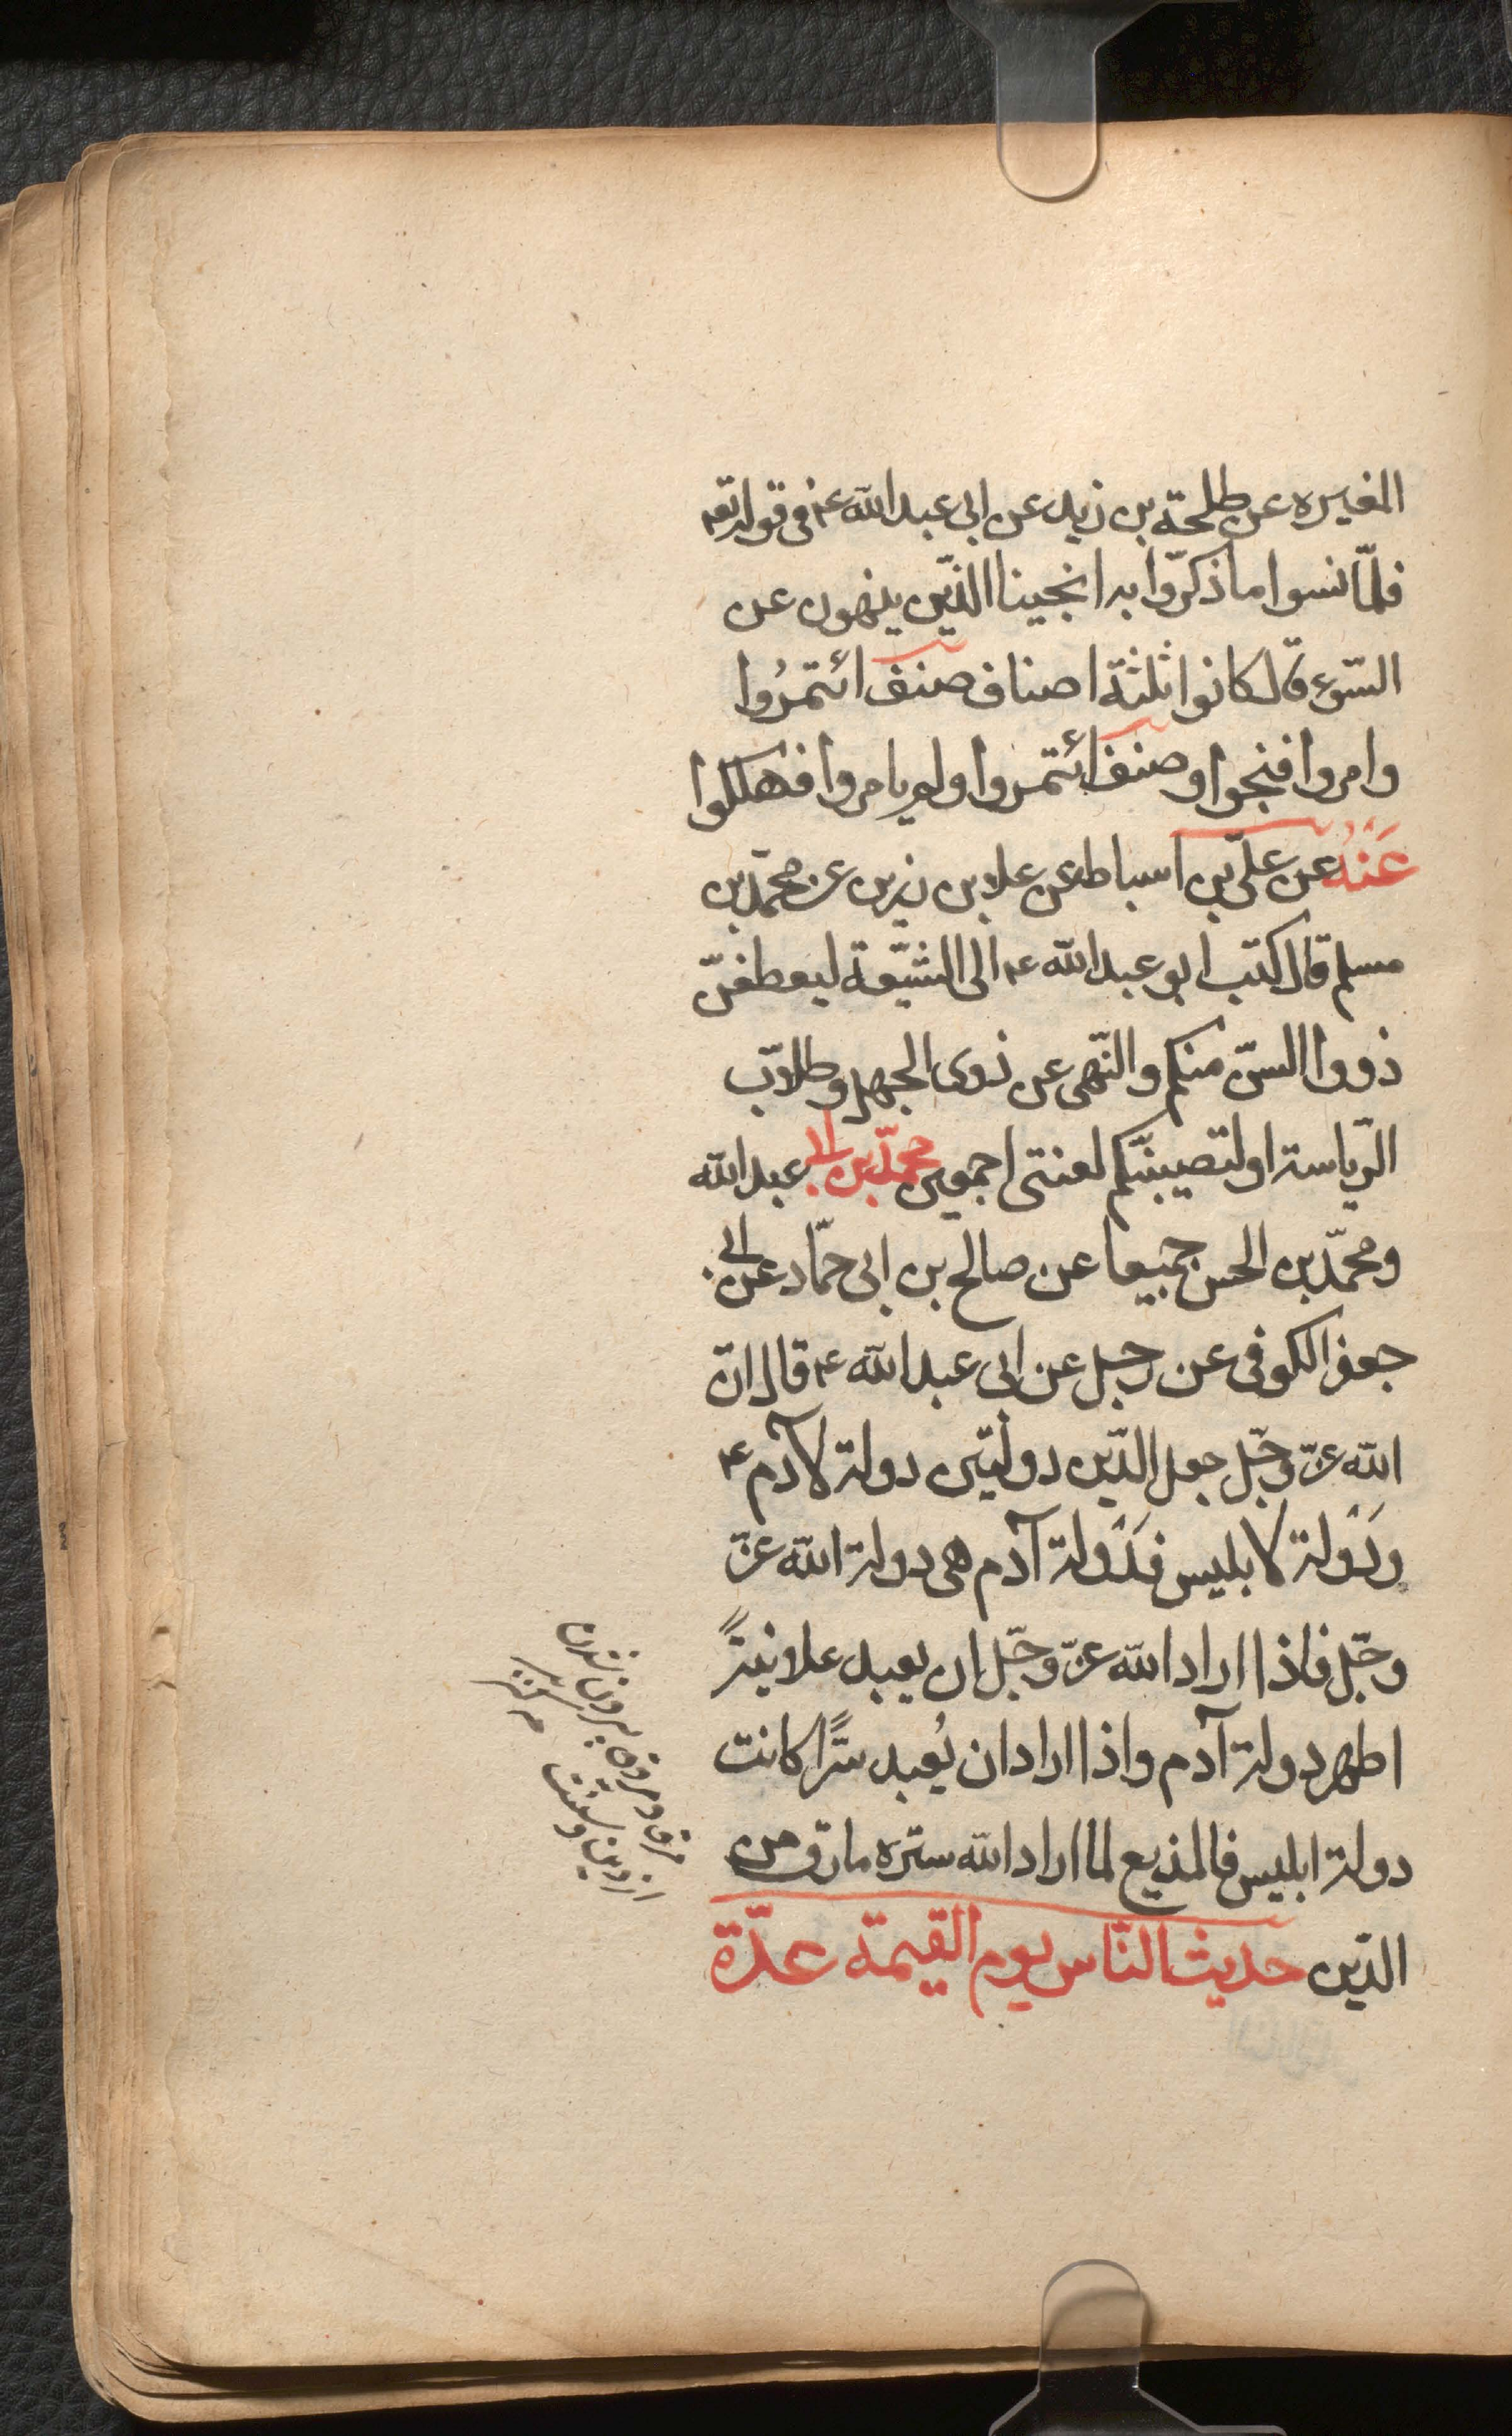 المغيره عن طلحة بن زيد عن ابى عبد الله ع فى قوله تع
فلمّا نسوا ما ذكرّوا به انجينا الذّين ينهون عن
السّوء قال كانوا ثلثة اصناف صنف ائتمرُوا
وامروا فنجوا وصنف ائتمروا ولم يامروا فهلكوا
عَنْهُ عن علىّ بن اسباط عن علا بن زرين عن محمّد بن
مسلم قال كتب ابو عبد الله ع الى الشيّعة ليعطفنّ
ذووا السنّ منكم والنّهى عن ذوى الجهل وطلاّب
الرّياسة او لتصيبنّكم لعنتى اجمعين محمّد بن ابى عبد الله
ومحمّد بن الحسن جميعا عن صالح بن ابى حمّاد عن ابى
جعفر الكوفى عن رجل عن ابى عبد الله ع قال انّ
الله عزّ وجّل جعل الدّين دولتين دولة لآدم ع
ودَوْلة لابليس فدَوْلة آدم هى دولة الله عزّ
وجّل فاذا اراد الله عزّ وجّل ان يعبد علانيةً
اظهر دولة آدم واذا اراد ان يُعبد سرًّا كانت
دولة ابليس فالمذيع لما اراد الله ستره مارق من
الدّين حديث النّاس يوم القيمة عدّة
مرق ومروقا بيرون شدن
از دين و سنت م كنز